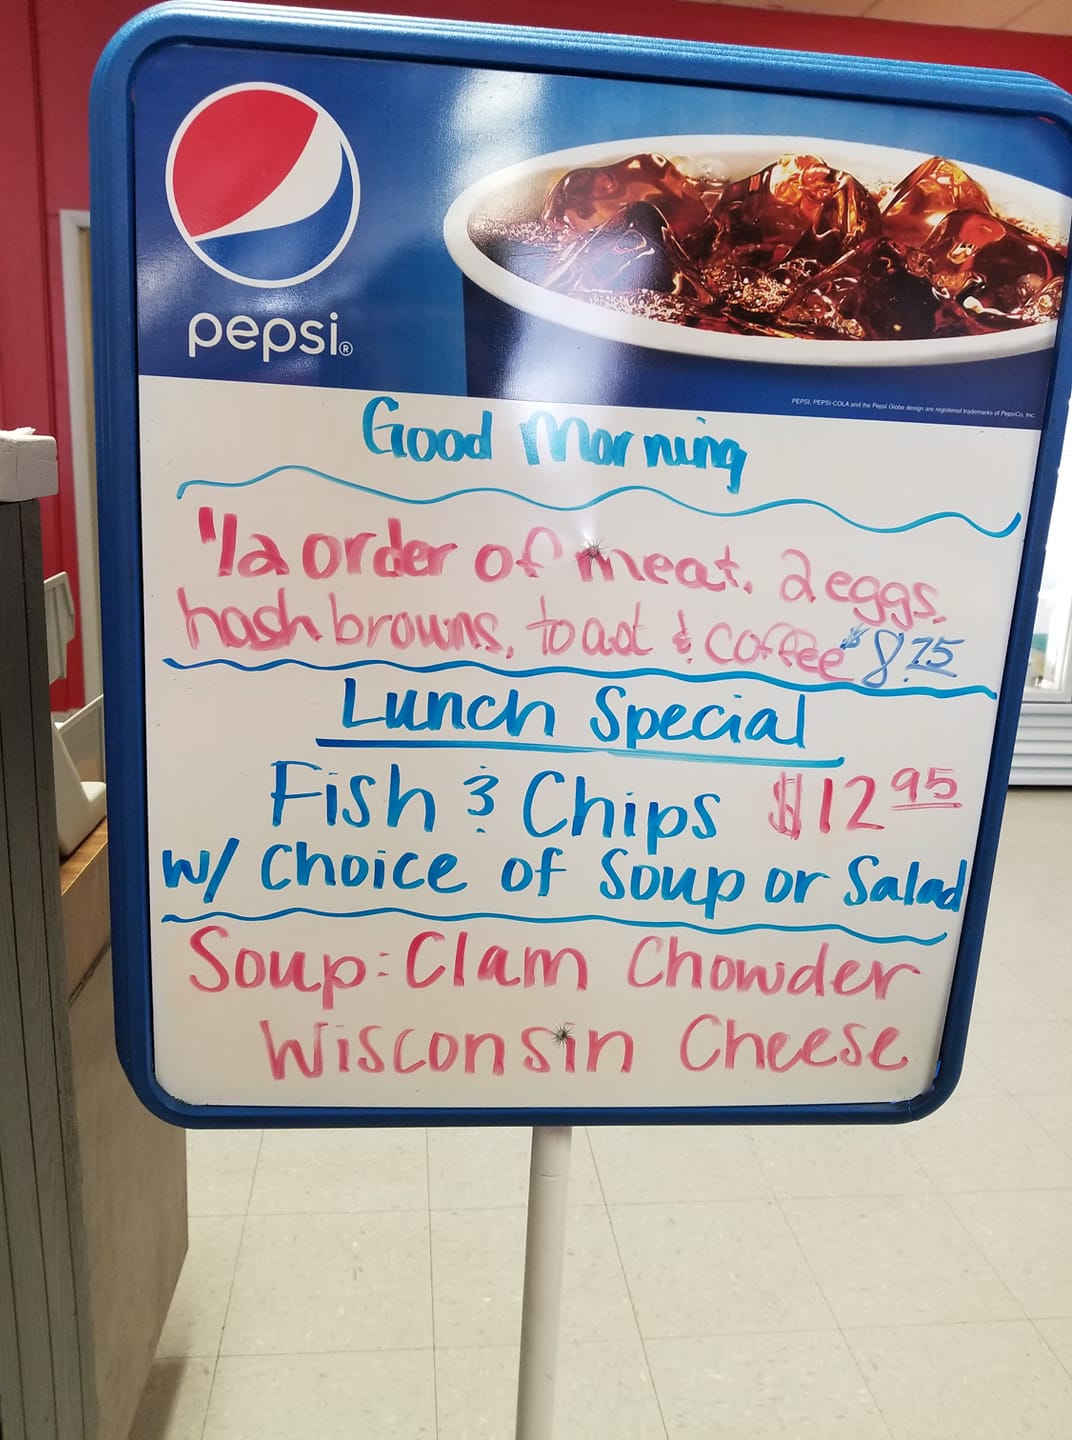 pepsi®
PEPSI, PEPSI-COLA and the Pepsi Globe design are registered trademarks of PepsiCo, Inc.
Good Morning
1/2 order of meat, 2 eggs,
hash browns, toast & coffee $8.75
Lunch Special
Fish & Chips $12 95
w/ Choice of Soup or Salad
Soup: Clam Chowder
Wisconsin Cheese